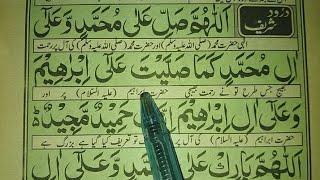 درود شریف
اَللّٰهُمَّ صَلِّ عَلٰى مُحَمَّدٍ وَّعَلٰى
الٰہی حضرت محمد (صلی اللہ علیہ وسلم) اور حضرت محمد (صلی اللہ علیہ وسلم) کی آل پر رحمت
اٰلِ مُحَمَّدٍ كَمَا صَلَّيْتَ عَلٰى اِبْرٰهِيْمَ
بھیج جس طرح تو نے رحمت بھیجی حضرت ابراہیم (علیہ السلام) پر اور
وَعَلٰى اٰلِ اِبْرٰهِيْمَ اِنَّكَ حَمِيْدٌ مَّجِيْدٌ ۝
حضرت ابراہیم (علیہ السلام) کی آل پر تو تعریف کیا گیا ہے بزرگ ہے
اَللّٰهُمَّ بَارِكْ عَلٰى مُحَمَّدٍ وَّعَلٰى اٰلِ